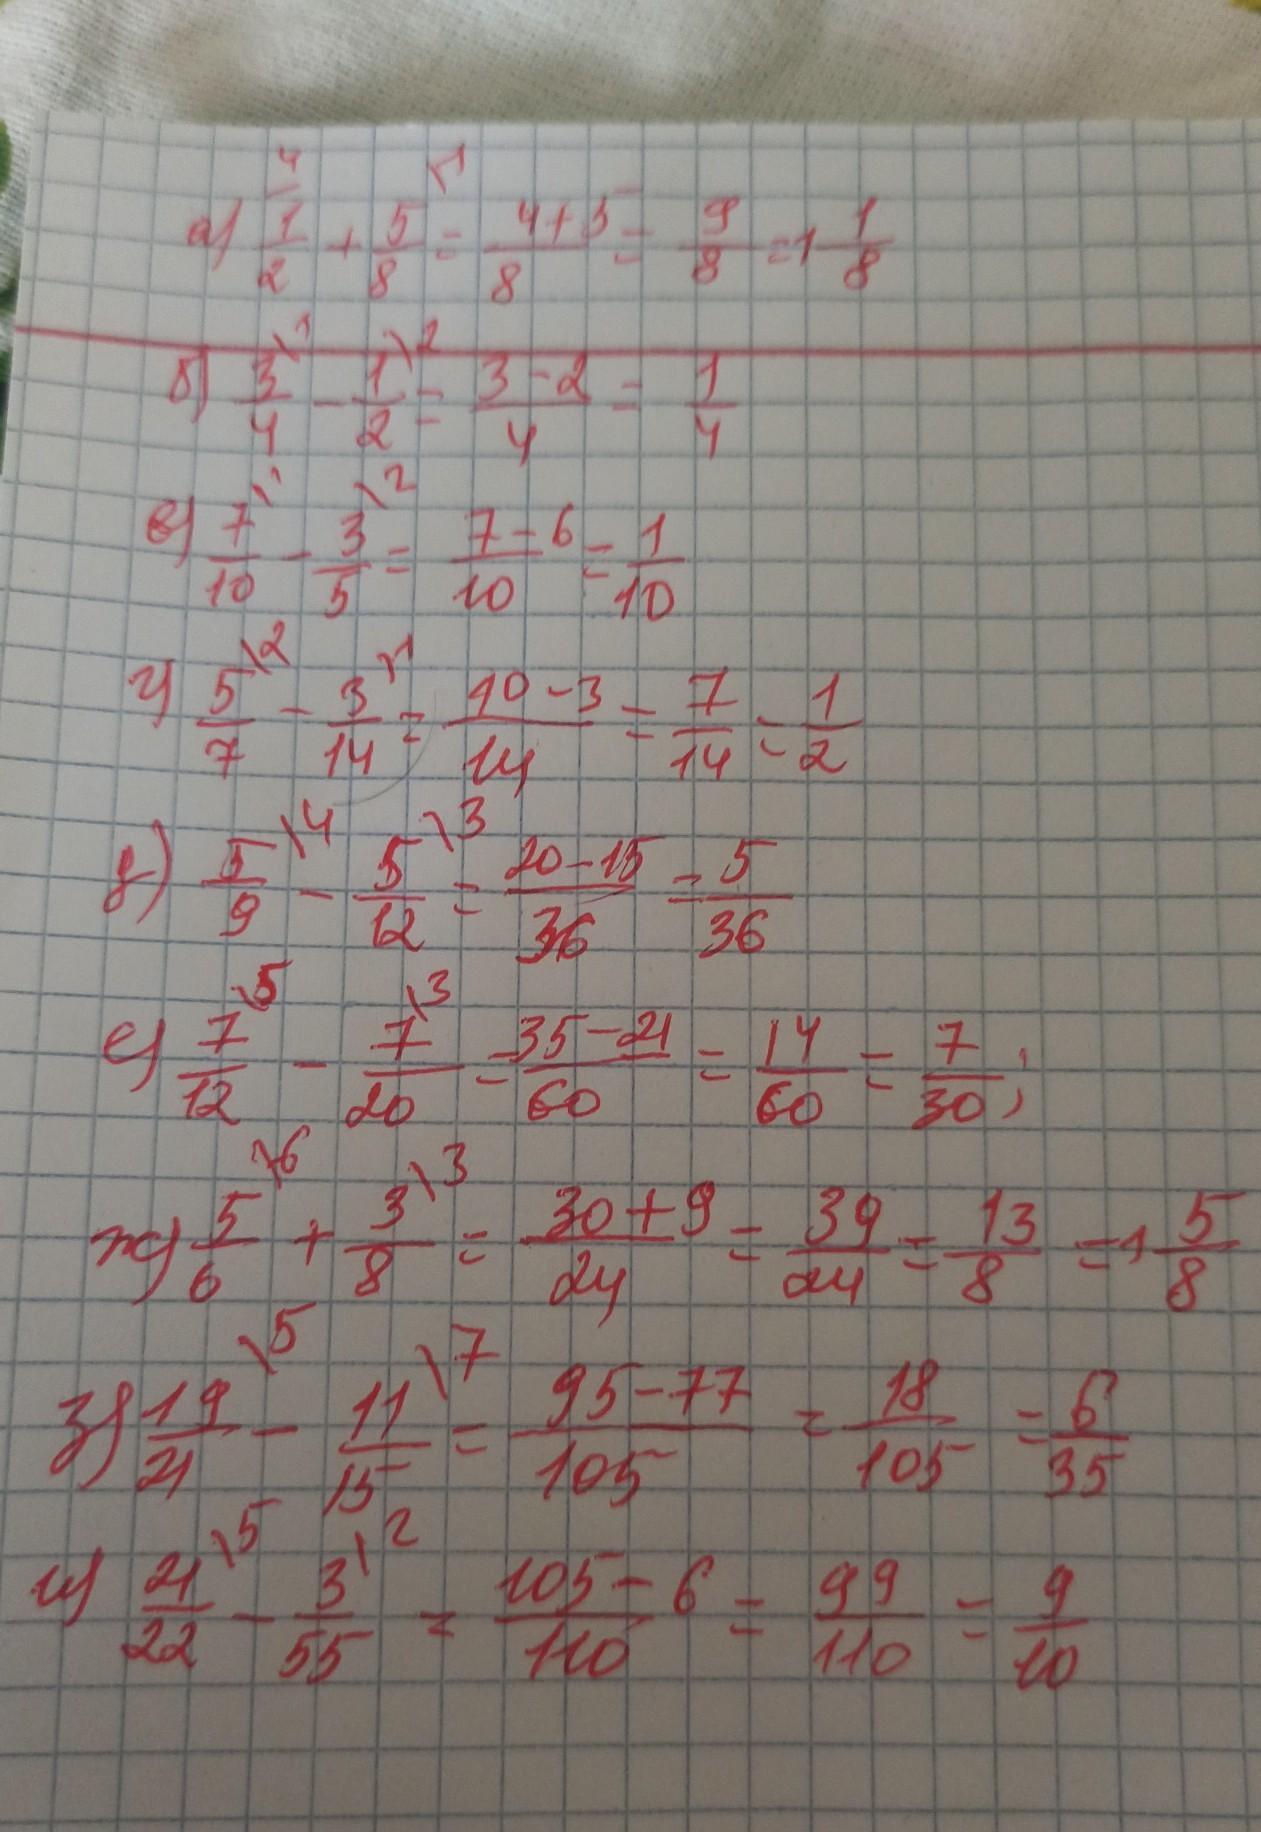 а) 1/2 \4 + 5/8 \1 = 4+5/8 = 9/8 = 1 1/8
б) 3/4 \1 - 1/2 \2 = 3-2/4 = 1/4
в) 7/10 \1 - 3/5 \2 = 7-6/10 = 1/10
г) 5/7 \2 - 3/14 \1 = 10-3/14 = 7/14 = 1/2
д) 5/9 \4 - 5/12 \3 = 20-15/36 = 5/36
е) 7/12 \5 - 7/20 \3 = 35-21/60 = 14/60 = 7/30;
ж) 5/6 \6 + 3/8 \3 = 30+9/24 = 39/24 = 13/8 = 1 5/8
з) 19/21 \5 - 11/15 \7 = 95-77/105 = 18/105 = 6/35
и) 21/22 \5 - 3/55 \2 = 105-6/110 = 99/110 = 9/10